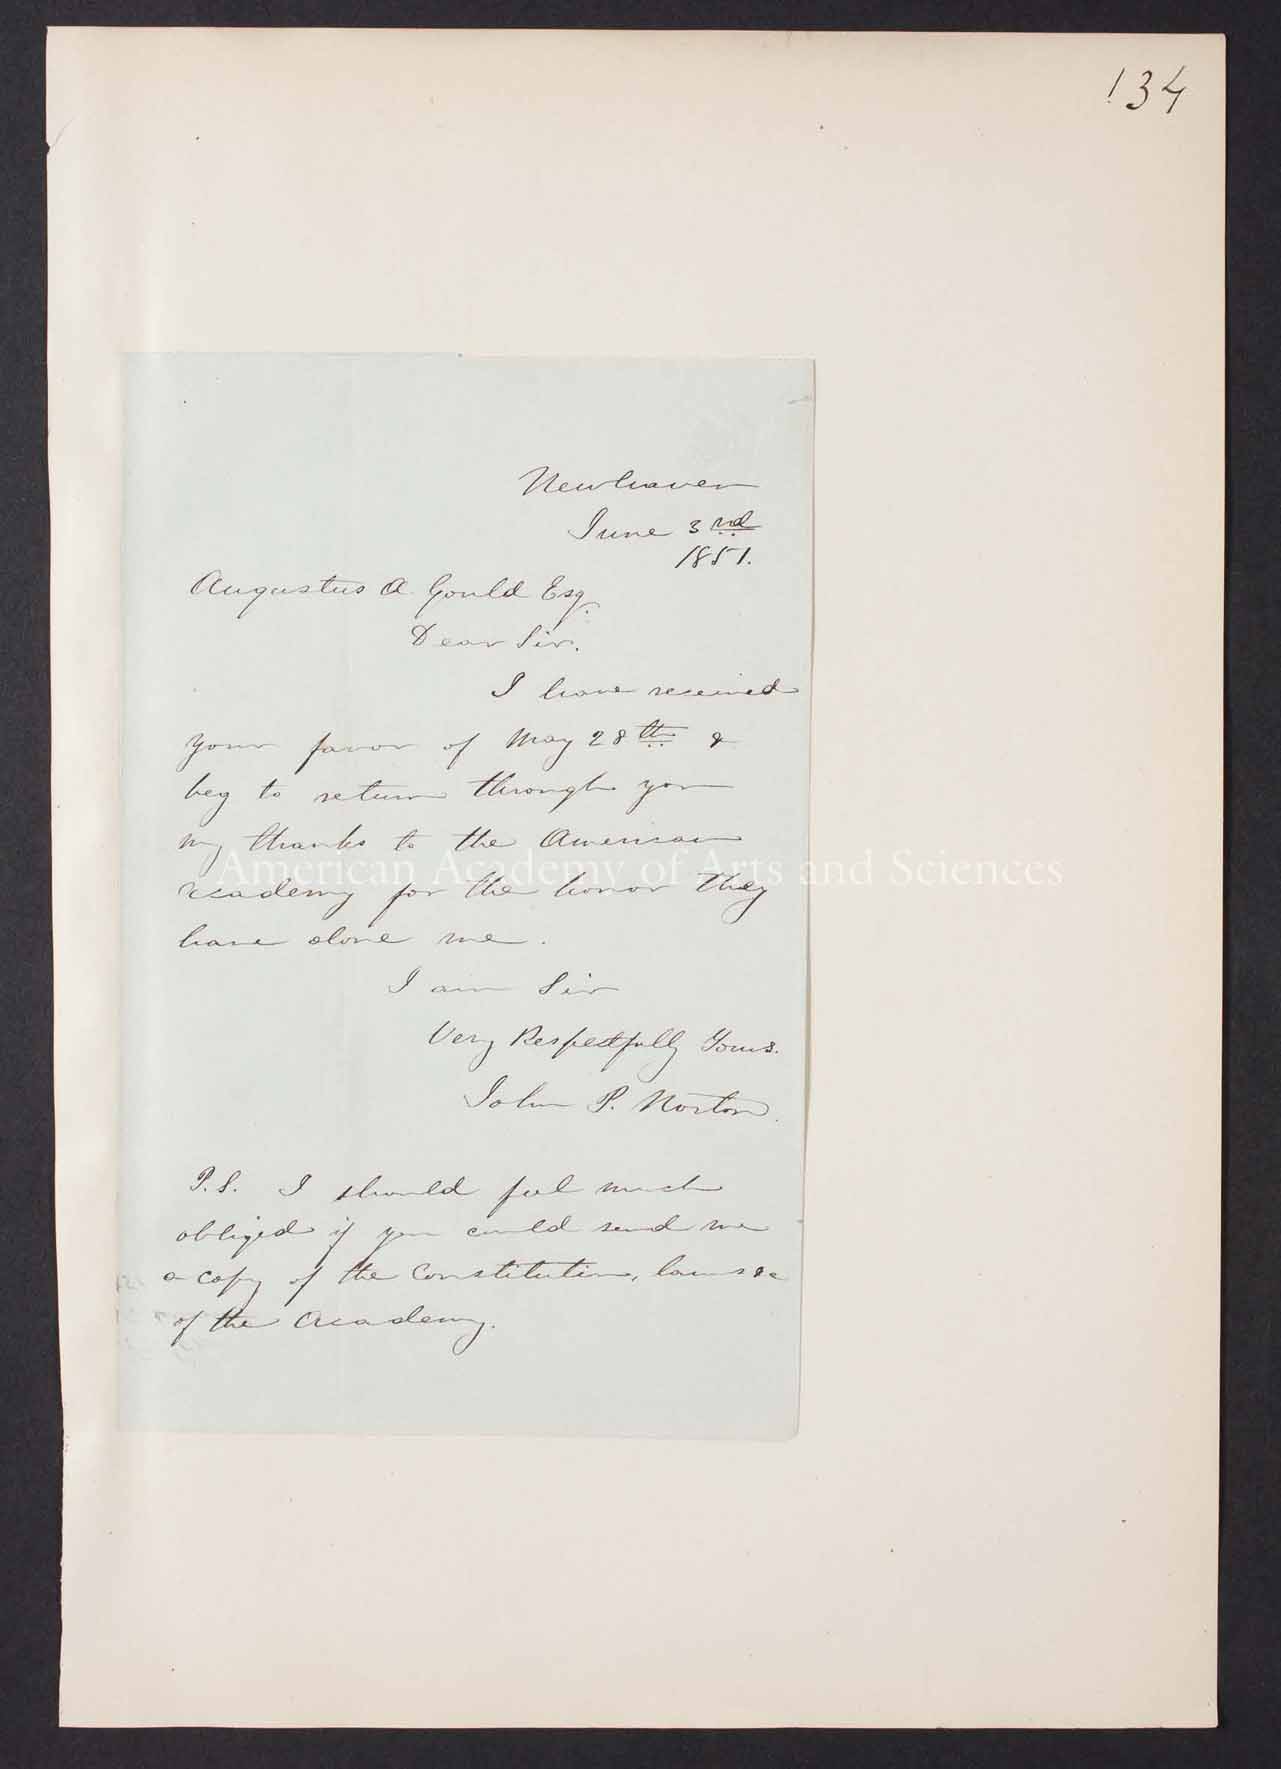 134
Newhaven
June 3rd
1851.
Augustus A. Gould Esq.
Dear Sir.
I have received
your favor of May 28th &
beg to return through you
my thanks to the American
American Academy of Arts and Sciences
academy for the honor they
have done me.
I am Sir
Very Respectfully Yours.
John P. Norton.
P.S. I should feel much
obliged if you could send me
a copy of the Constitution, laws &c
of the Academy.